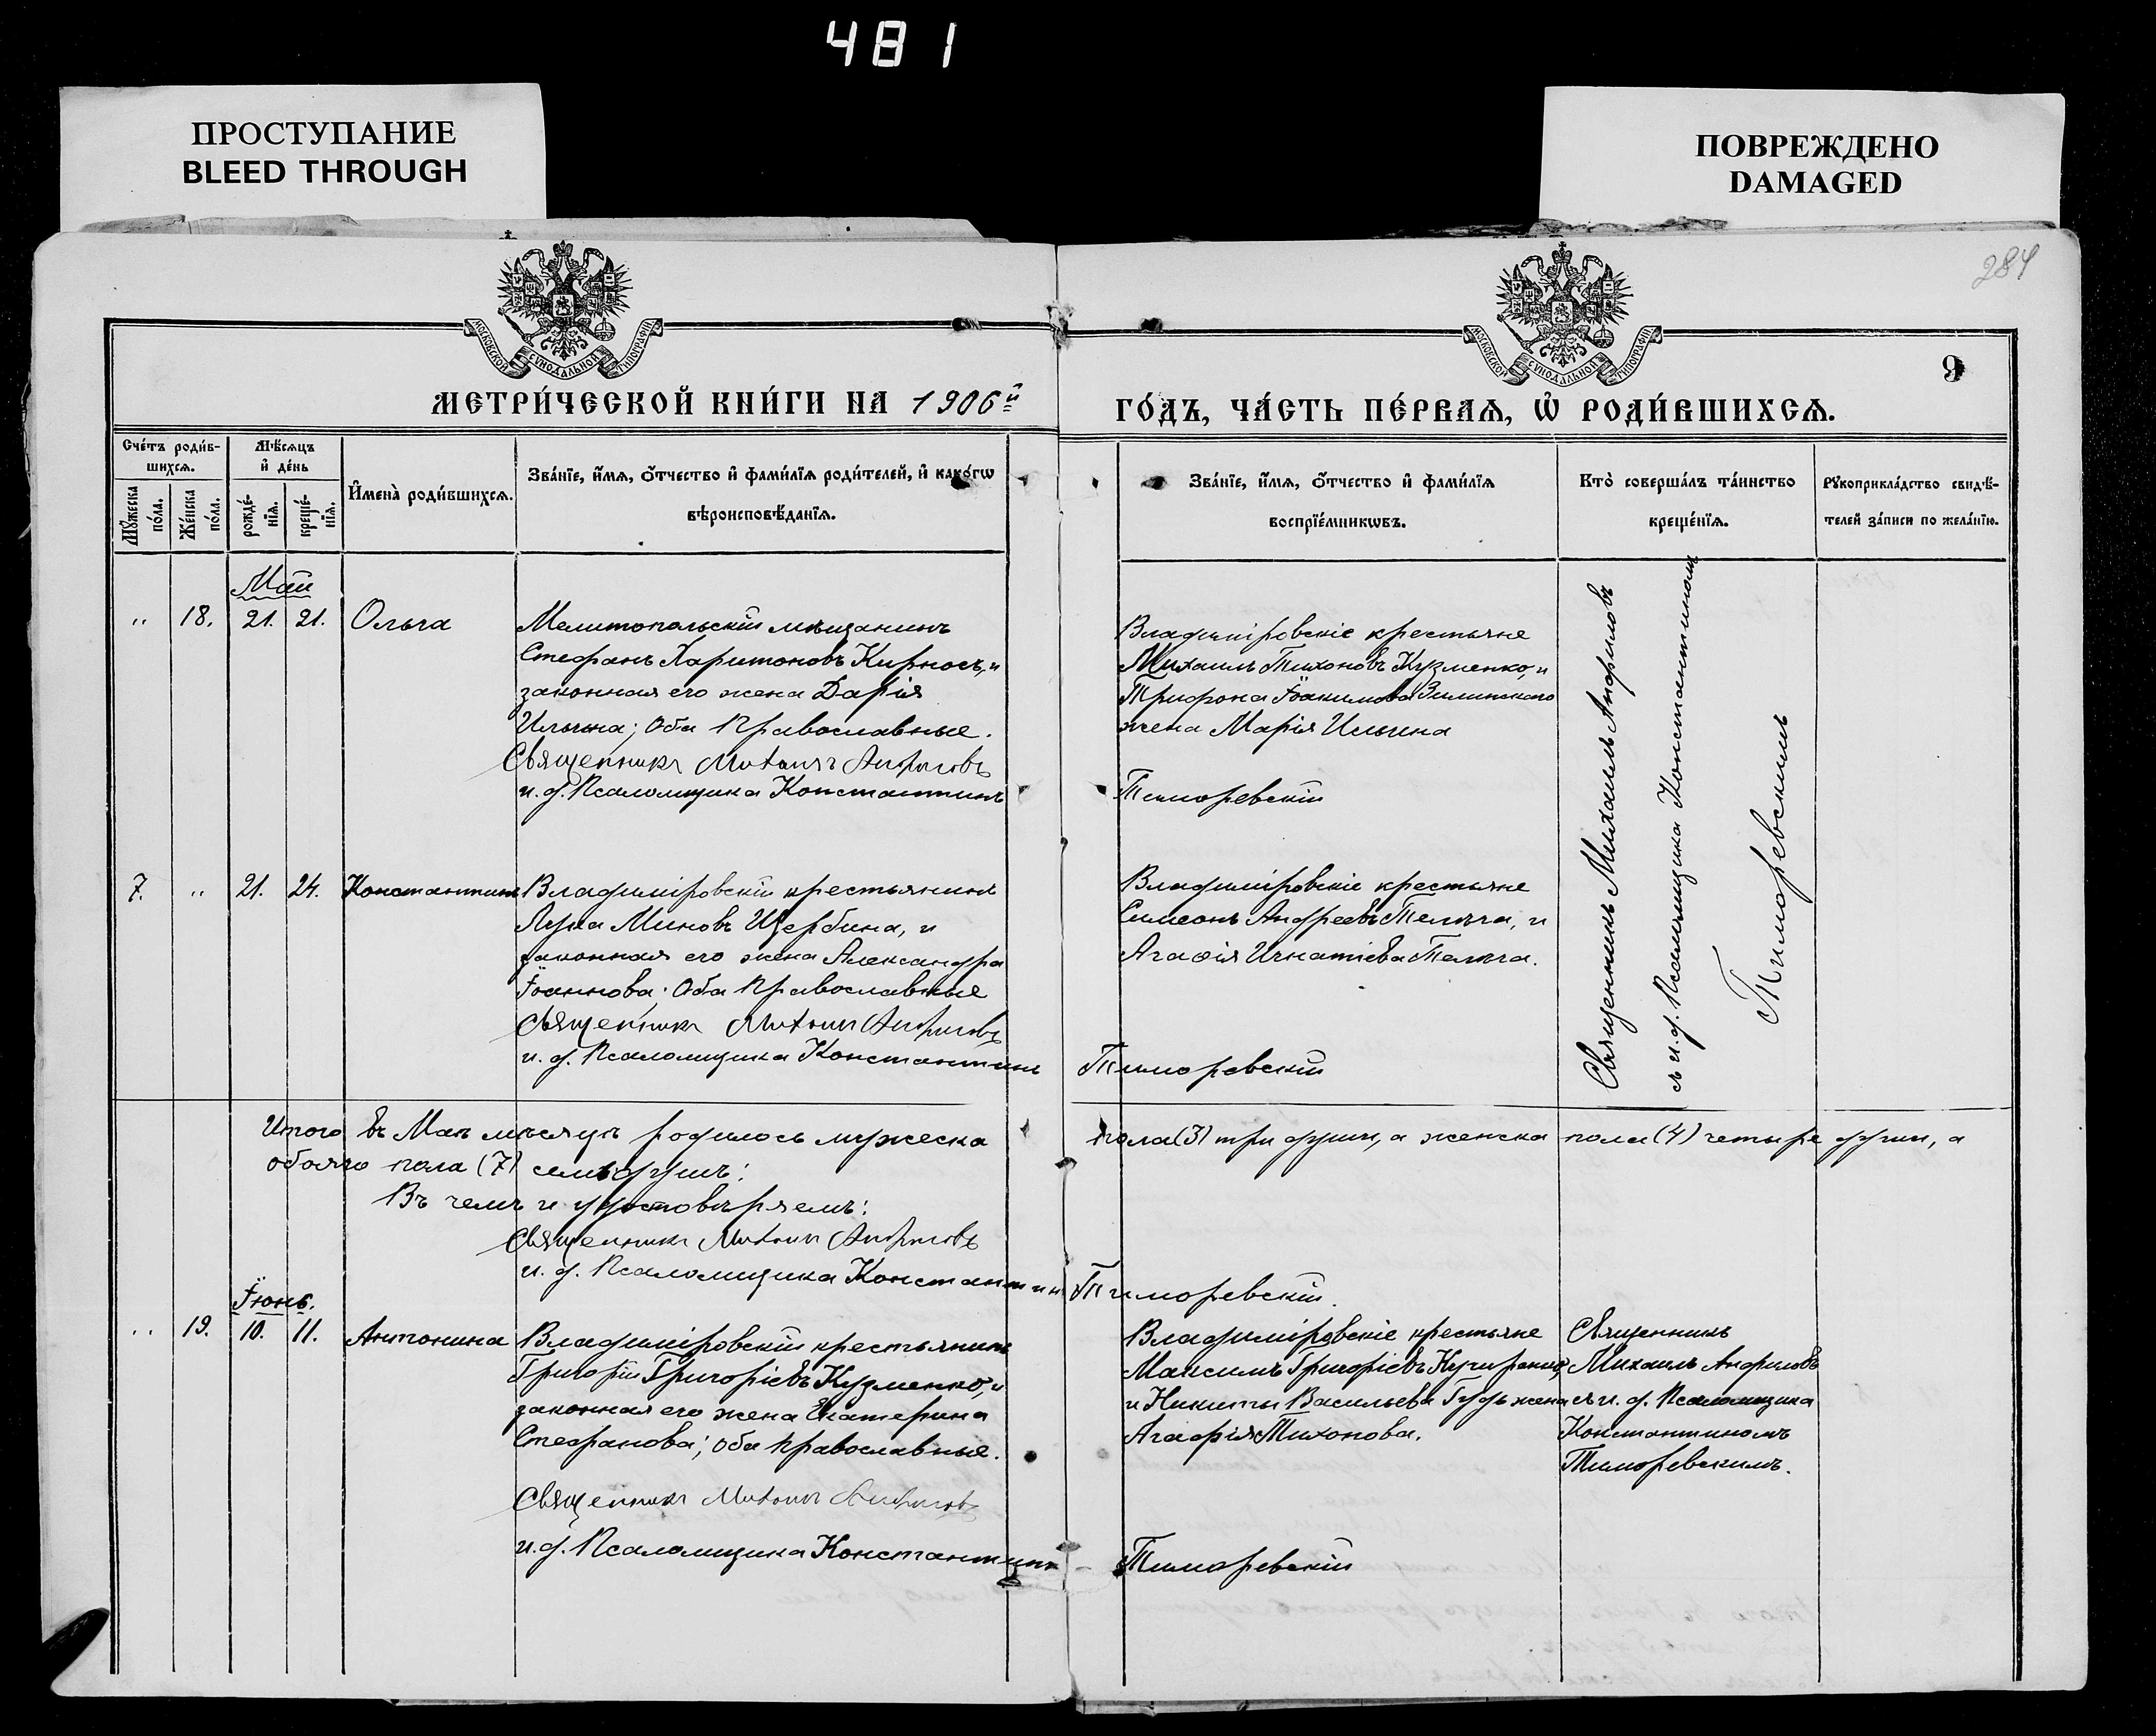 481
ПРОСТУПАНИЕ
BLEED THROUGH
ПОВРЕЖДЕНО
DAMAGED
284
МОСКОВСКОЙ СѴНОДАЛЬНОЙ ТИПОГРАФІИ
МОСКОВСКОЙ СѴНОДАЛЬНОЙ ТИПОГРАФІИ
9
МЕТРИ́ЧЕСКОЙ КНИ́ГИ НА 1906й
ГО́ДЪ, ЧА́СТЬ ПЕ́РВАЯ, Ѡ҆ РОДИ́ВШИХСЯ.
Сче́тъ роди́в-
шихся.
Мѣ́сяцъ
и҆ де́нь
Мꙋ́жеска по́ла.
Же́нска по́ла.
рожде́-
нїя.
креще́-
нїя.
И҆мена̀ роди́вшихся.
Зва́нїе, и҆́мя, ѻ҆́тчество и҆ фами́лїя роди́телей, и҆ како́гѡ
вѣроисповѣ́данїя.
Зва́нїе, и҆́мя, ѻ҆́тчество и҆ фами́лїя
воспрїе́мникѡвъ.
Кто̀ соверша́лъ та́инство
креще́нїя.
Рꙋкоприкла́дство свидѣ́-
телей за́писи по жела́нїю.
Май
" 18. 21. 21. Ольга
Мелитопольскій мѣщанинъ
Стефанъ Харитоновъ Кирносъ, и
законная его жена Дарія
Ильина; Оба Православные.
Священникъ Михаилъ Анфиловъ
и. д. Псаломщика Константинъ
Владиміровскіе крестьяне
Михаилъ Тихоновъ Кузменко, и
Трифона Іоакимова Зилинскаго
жена Марія Ильина
Тиморевскій
Священникъ Михаилъ Анфиловъ
съ и. д. Псаломщика Константиномъ
Тиморевскимъ
7. " 21. 24. Константинъ
Владиміровскій крестьянинъ
Лука Миновъ Щербина, и
законная его жена Александра
Іоаннова; Оба Православные
Священникъ Михаилъ Анфиловъ
и. д. Псаломщика Константинъ
Владиміровскіе крестьяне
Симеонъ Андреевъ Телига, и
Агафія Игнатіева Телига.
Тиморевскій
Итого въ Маѣ мѣсяцѣ родилось мужеска пола (3) три души, а женска пола (4) четыре души, а
обоего пола (7) семь душъ:
Въ чемъ и удостовѣряемъ:
Священникъ Михаилъ Анфиловъ
и. д. Псаломщика Константинъ Тиморевскій.
Іюнь.
" 19. 10. 11. Антонина
Владиміровскій крестьянинъ
Григорій Григорьевъ Кузменко, и
законная его жена Екатерина
Стефанова; оба православные.
Священникъ Михаилъ Анфиловъ
и. д. Псаломщика Константинъ
Владиміровскіе крестьяне
Максимъ Григоріевъ
и Никиты Васильева Гудь жена
Агафія Тихонова.
Тиморевскій
Священникъ
Михаилъ Анфиловъ
съ и. д. Псаломщика
Константиномъ
Тиморевскимъ.